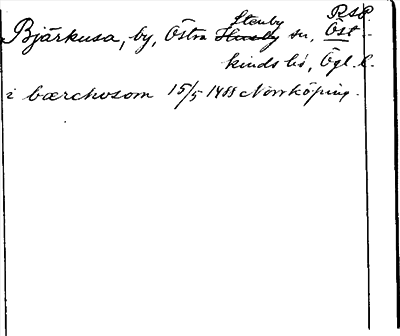 Stenby R.S.P.
Bjärkusa, by, Östra Husby sn, Öst-
kinds hd, Ögl. l.
i bærchosom 15/5 1488 Norrköping.